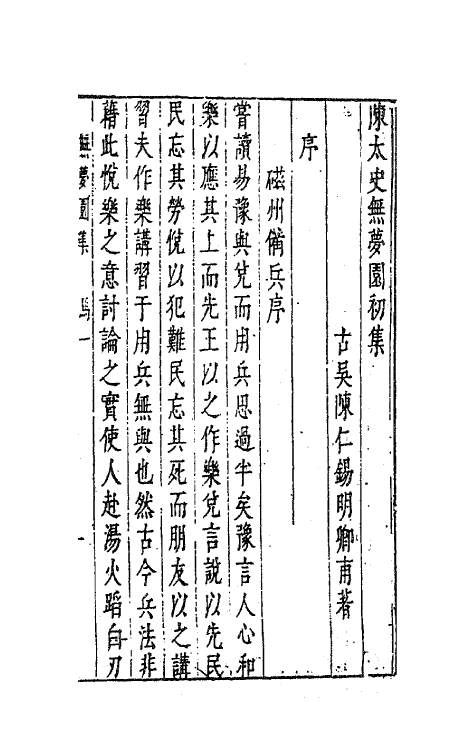 陳太史無夢園初集
古吳陳仁錫明卿甫著
序
磁州備兵序
嘗讀易豫與兌而用兵思過半矣豫言人心和
樂以應其上而先王以之作樂兌言說以先民
民忘其勞悅以犯難民忘其死而朋友以之講
習夫作樂講習于用兵無與也然古今兵法非
藉此悅樂之意討論之實使人赴湯火蹈白刃
無夢園集 馬一 一